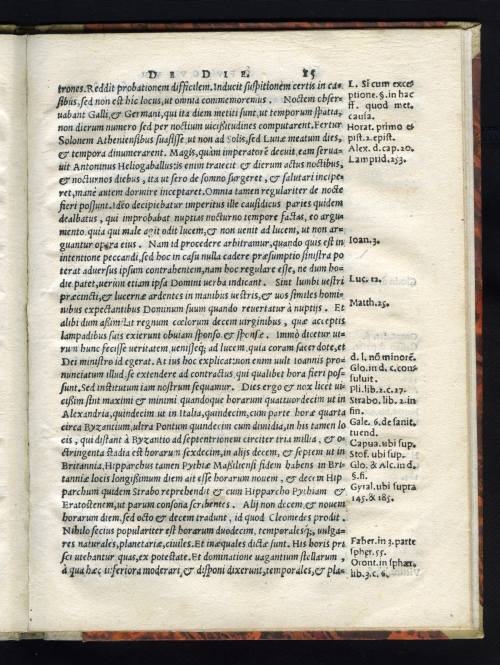 DE DIE. 25
trones. Reddit probationem difficilem. Inducit suspitionem certis in ca-
sibus, sed non est hic locus, ut omnia commemoremus. Noctem obser-
uabant Galli, & Germani, qui ita diem metiti sunt, ut temporum spatia,
non dierum numero sed per noctium uicissitudines computarent. Fertur
Solonem Atheniensibus suasisse. ut non ad Solis, sed Lunæ meatum dies,
& tempora dinumerarent. Magis, quàm imperatorē decuit, eam serua-
uit Antoninus Heliogaballus: is enim traiecit & dierum actus noctibus,
& nocturnos diebus, ita ut sero de somno surgeret, & salutari incipe-
ret, manè autem dormire inceptaret. Omnia tamen regulariter de nocte
fieri possunt. Ideo decipiebatur imperitus ille causidicus paries quidem
dealbatus, qui improbabat nuptias nocturno tempore factas, eo argu-
mento. quia qui male agit odit lucem, & non uenit ad lucem, ut non ar-
guantur opera eius. Nam id procedere arbitramur, quando quis est in
intentione peccandi, sed hoc in casu nulla cadere præsumptio sinistra po
terat aduersus ipsum contrahentem, nam hoc regulare esse, ne dum ho-
die patet, uerùm etiam ipsa Domini uerba indicant. Sint lumbi uestri
præcincti, & lucernæ ardentes in manibus uestris, & uos similes homi-
nibus expectantibus Dominum suum quando reuertatur à nuptijs. Et
alibi dum assimilat regnum cœlorum decem uirginibus, quæ acceptis
lampadibus suis exierunt obuiam sponso & sponsæ. Immò dicetur ut-
run hunc fecisse ueritatem uenisseq; ad lucem. quia coram sacerdote, et
Dei ministro id egerat. At ius hoc explicat: non enim uult Ioannis pro-
nunciatum illud, se extendere ad contractus, qui qualibet hora fieri pos-
sunt. Sed institutum iam nostrum sequamur. Dies ergo & nox licet ui-
cissim sint maximi & minimi quandoque horarum quatuordecim ut in
Alexandria, quindecim ut in Italia, quindecim, cum parte hora quarta
circa Byzantium, ultra Pontum quindecim cum dimidia, in his tamen lo
cis, qui distant à Byzantio ad septentrionem circiter tria millia, & o-
ctringenta stadia est horarum sexdecim, in alijs decem, & septem ut in
Britannia. Hipparchus tamen Pythiæ Massiliensi fidem habens in Bri-
tanniæ locis longissimum diem ait esse horarum nouem, & decem Hip
parchum quidem Strabo reprehendit & cum Hipparcho Pythiam &
Eratostenem, ut parum consona scribentes. Alij non decem, & nouem
horarum diem. sed octo & decem tradunt, id quod Cleomedes prodit.
Nihilo secius populariter est horarum duodecim, temporalesq;, uulga-
res naturales, planetariæ, ciuiles. Et inæquales dictæ sunt. His horis pri
sci utebantur quas, ex potestate. Et dominatione uagantium stellarum,
à qua hæc inferiora moderari, & disponi dixerunt, temporales, & pla-
L. Si cum exce
ptione. §. in hac
ff. quod met.
causa.
Horat. primo e
pist. 2. epist.
Alex. d. cap. 20.
Lamprid. 253.
Ioan. 3.
Luc. 12.
Matth. 25.
d. l. nō minorē.
Glo. in d. c. con-
suluit.
Pli. lib. 2. c. 27.
Strabo. lib. 2. in
fin.
Gale. 6. de sanit.
tuend.
Capua. ubi sup.
Stof. ubi sup.
Glo. & Alc. in d.
§. fi.
Gyral. ubi supra
145. & 185.
Faber. in 3. parte
sphęr. 55.
Oront. in sphær.
lib. 3. c. 6.